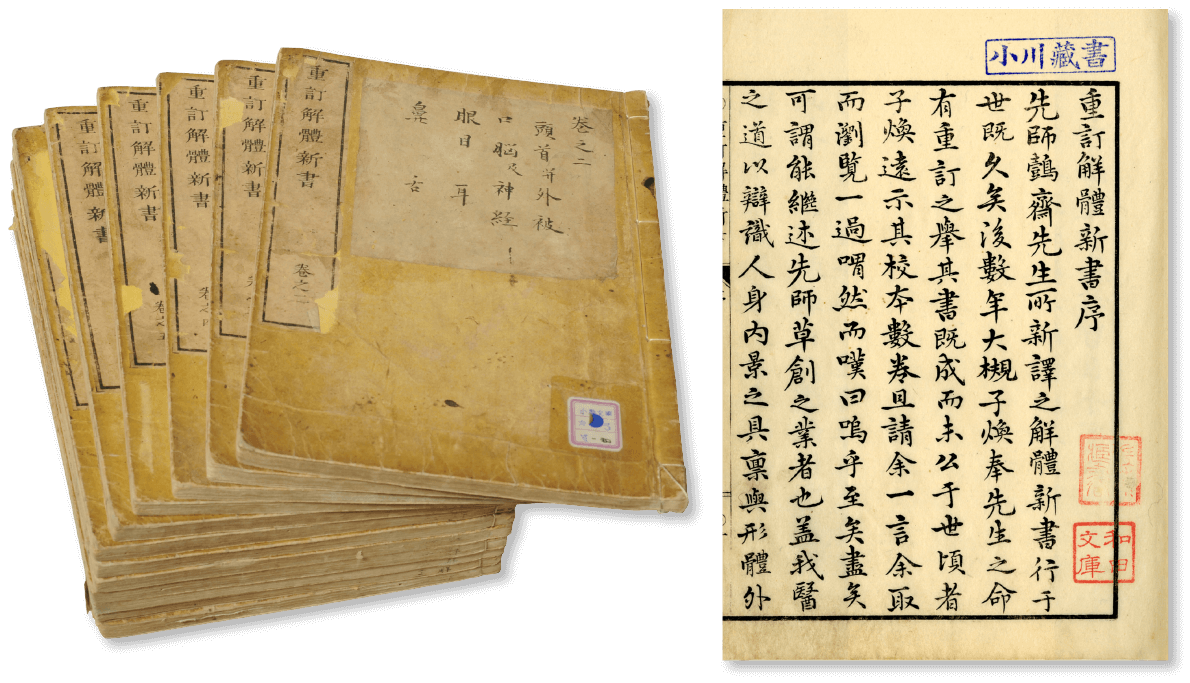 重訂解體新書 卷之二
卷之二
頭首并外被
口 脳及神経
眼目 耳
鼻 舌
重訂解體新書
重訂解體新書 卷之四
重訂解體新書 卷之五
重訂解體新書
小川藏書
重訂解體新書序
先師鷧齋先生所新譯之解體新書行于
世既久矣後數年大槻子煥奉先生之命
有重訂之擧其書既成而未公于世頃者
子煥遠示其校本數卷且請余一言余取
而瀏覽一過喟然而嘆曰嗚乎至矣盡矣
可謂能繼述先師草創之業者也盖我醫
之道以辯識人身内景之具稟與形體外
和田
文庫